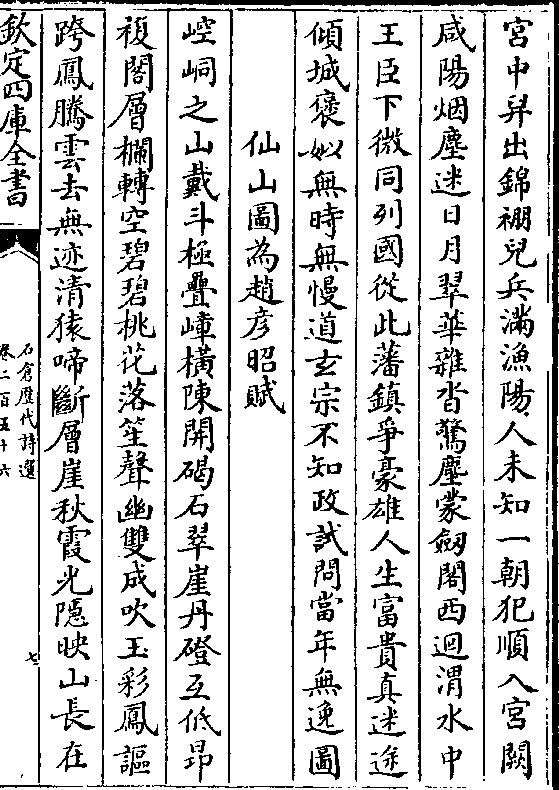 宮中舁出錦禂兒兵滿漁陽人未知一朝犯順入宮闕
咸陽烟塵迷日月翠華雜沓驚塵蒙劔閣西迴渭水中
王臣下微同列國從此藩鎮爭豪雄人生富貴真迷途
傾城褒姒無時無慢道玄宗不知政試問當年無逸圖
仙山圖為趙彦昭賦
崆峒之山戴斗極疊嶂横陳開碣石翠崖丹磴互低昂
複閣層欄轉空碧碧桃花落笙聲幽雙成吹玉彩鳳謳
跨鳳騰雲去無迹清猿啼斷層崖秋霞光隱映山長在
欽定四庫全書
石倉歷代詩選
卷二百五十六
七